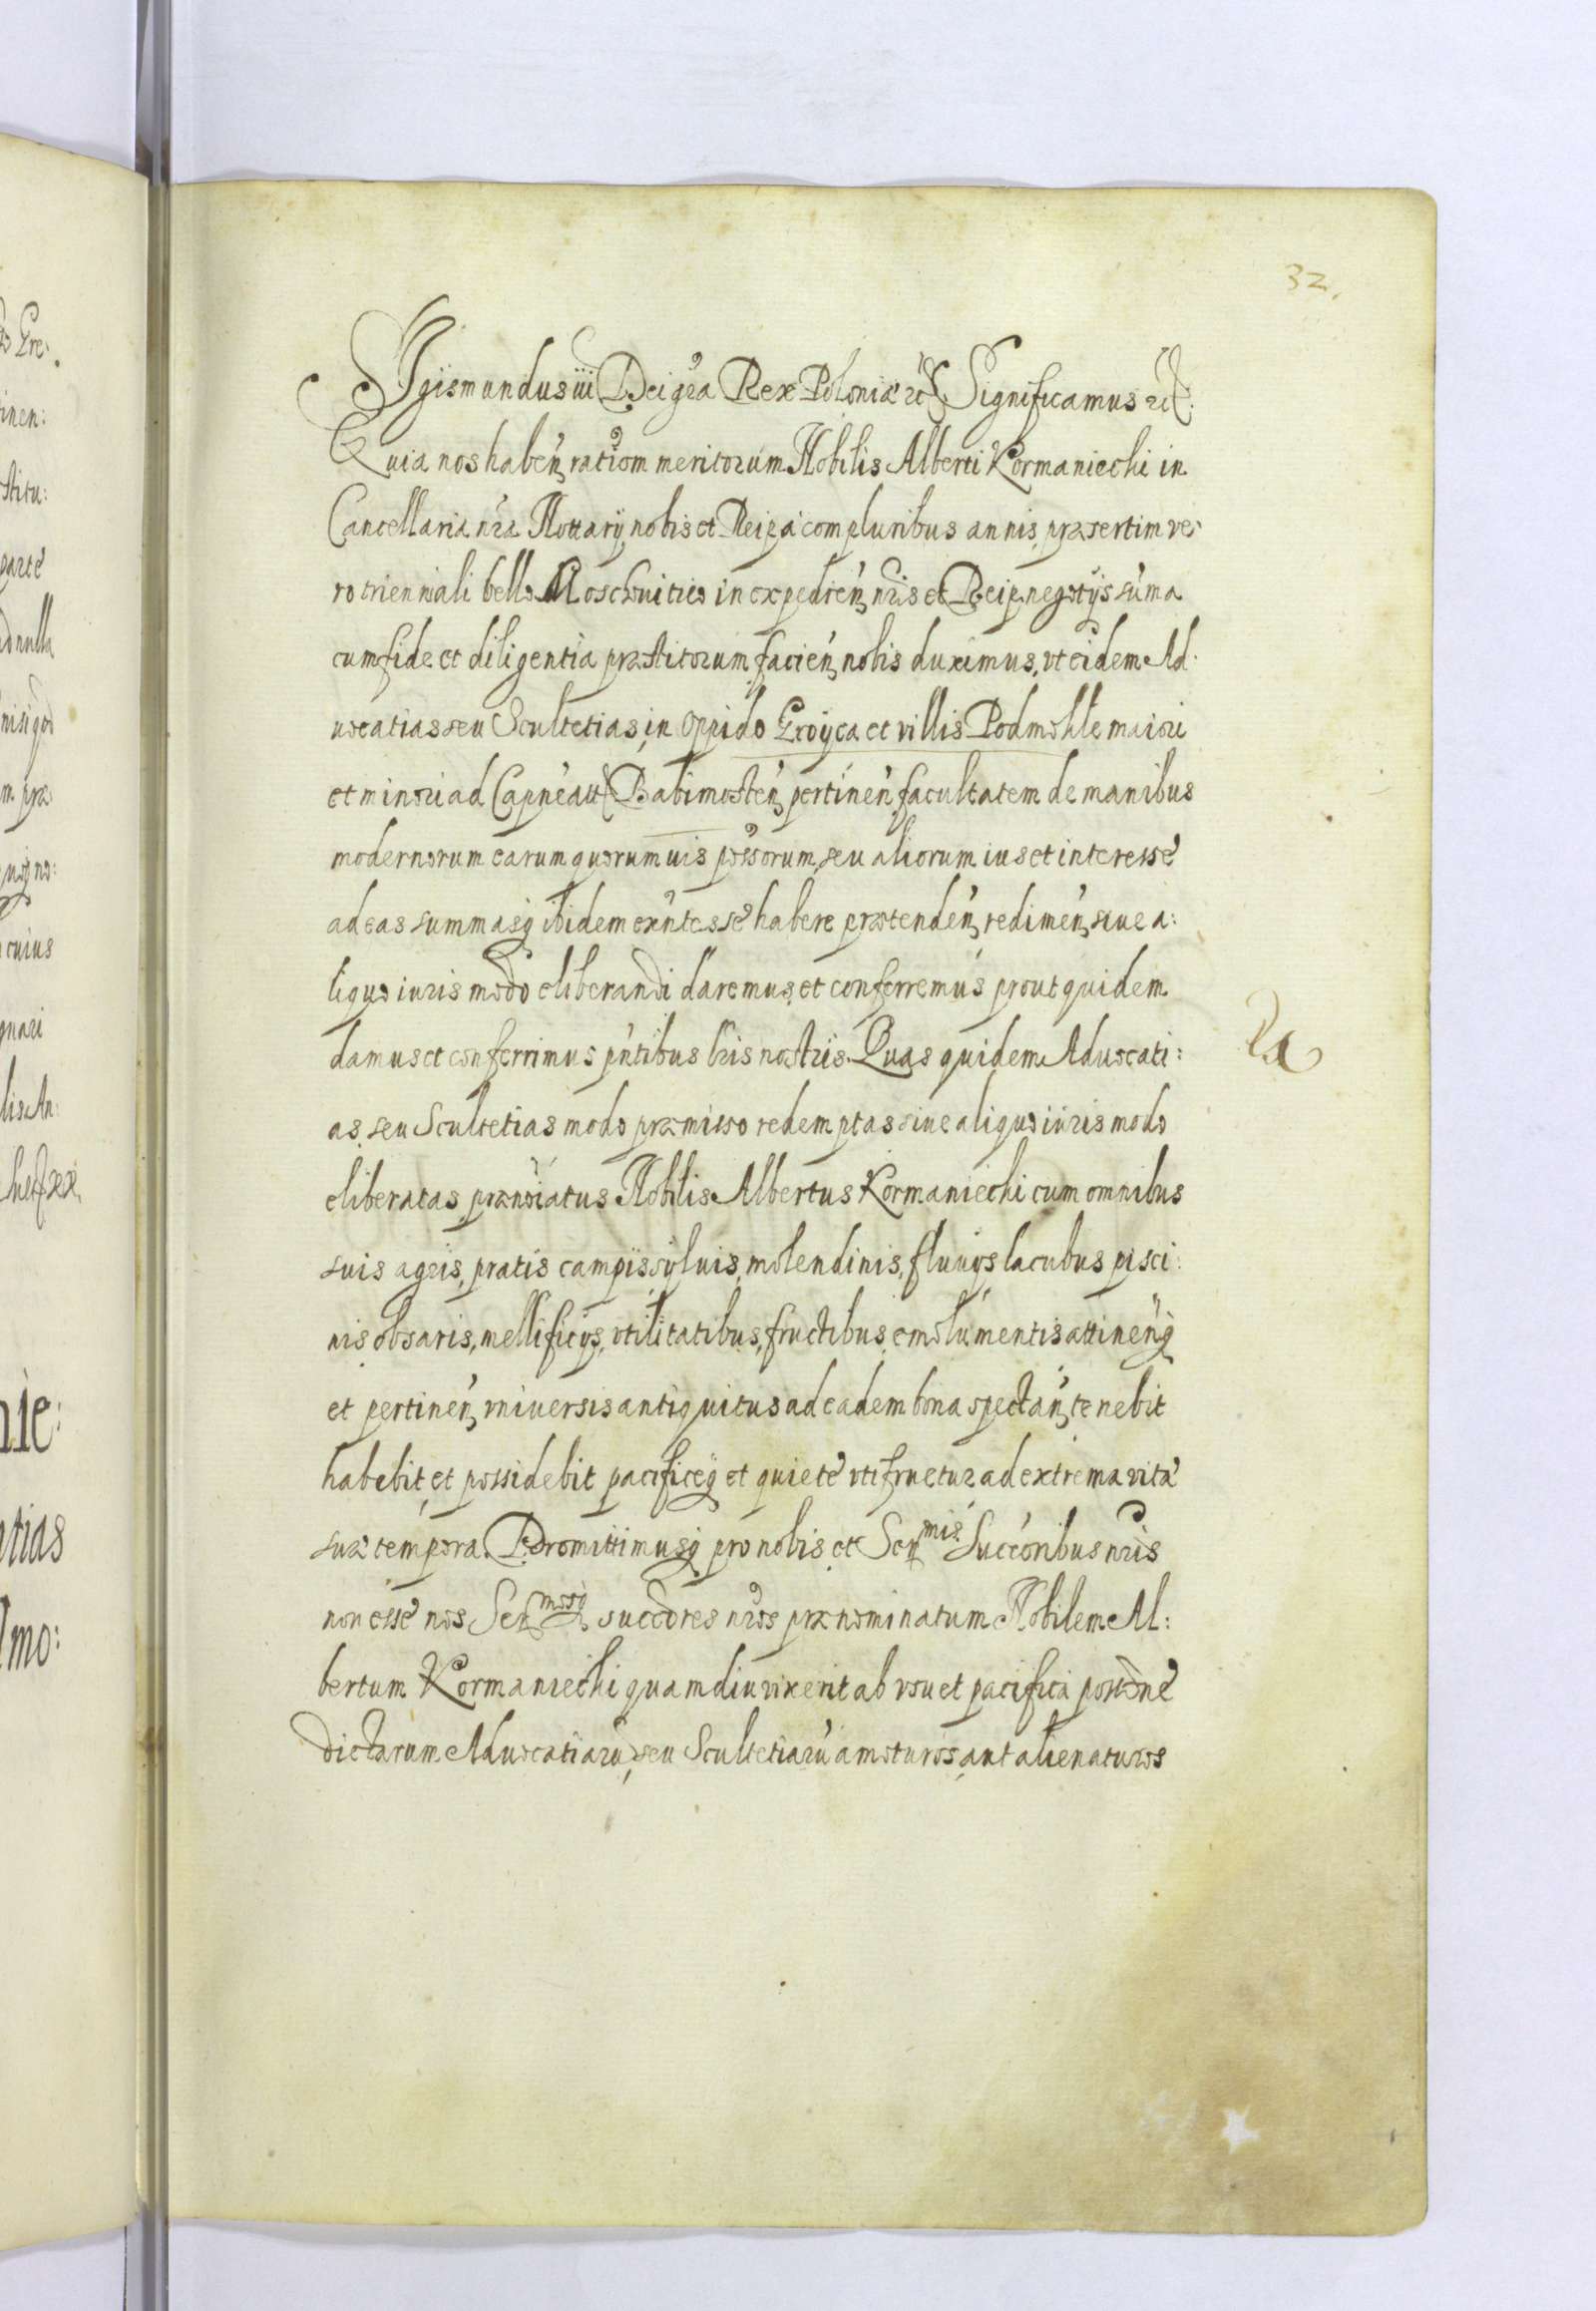 32.
Sigismundus iii Dei gra Rex Poloniæ etc. Significamus etc.
Quia nos haben̄ ratiōm meritorum Nobilis Alberti Kormaniecki in
Cancellaria nrã Nottarij, nobis et Reipã compluribus annis, præsertim ve-
ro triennali bello Moschuitico in expedien̄ nris et Reip. negotijs sūma
cum fide et diligentia præstitorum facien̄ nobis duximus, vt eidem Ad-
uocatias seu Scultetias, in oppido Groyca et villis Podmokle maiori
et minori ad Capnēatt Babimosten̄ pertinen̄ facultatem de manibus
modernorum earum quorumuis possorum, seu aliorum ius et interesse
ad eas summasq ibidem exn̄tes se habere prætenden̄ redimen̄ siue a:
liquo iuris modo eliberandi daremus, et conferremus prout quidem
damus et conferrimus pn̄tibus lris nostris. Quas quidem Aduocati:
as, seu Scultetias modo præmisso redemptas siue aliquo iuris modo
eliberatas, prænoiatus Nobilis Albertus Kormaniecki cum omnibus
suis agris, pratis campis, syluis, molendinis, fluuijs lacubus pisci:
nis, obsaris, mellificijs, vtilitatibus, fructibus, emolumentis attinen̄q
et pertinen̄ vniuersis antiquitus ad eadem bona spectan̄ tenebit
habebit, et possidebit pacificeq et quiete vtifruetur ad extrema vitæ
suæ tempora. Promittimusq pro nobis, et Sermis Succōribus nris
non esse nos Sermosq succōres nros prænominatum Nobilem Al:
bertum Kormaniecki quamdiu vixerit ab vsu et pacifica possone
dictarum Aduocatiarū, seu Scultetiarū amoturos, aut alienaturos